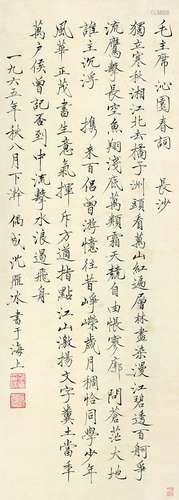 毛主席沁園春詞　長沙
獨立寒秋湘江北去橘子洲頭看萬山紅遍層林盡染漫江碧透百舸爭
流鷹擊長空魚翔淺底萬類霜天競自由悵寥廓　問蒼茫大地
誰主沉浮　攜來百侶曾游憶往昔崢嶸歲月稠恰同學少年
風華正茂書生意氣揮斥方遒指點江山激揚文字糞土當年
萬戶侯曾記否到中流擊水浪遏飛舟
一九六五年秋八月下澣　偶成　沈雁冰書于海上